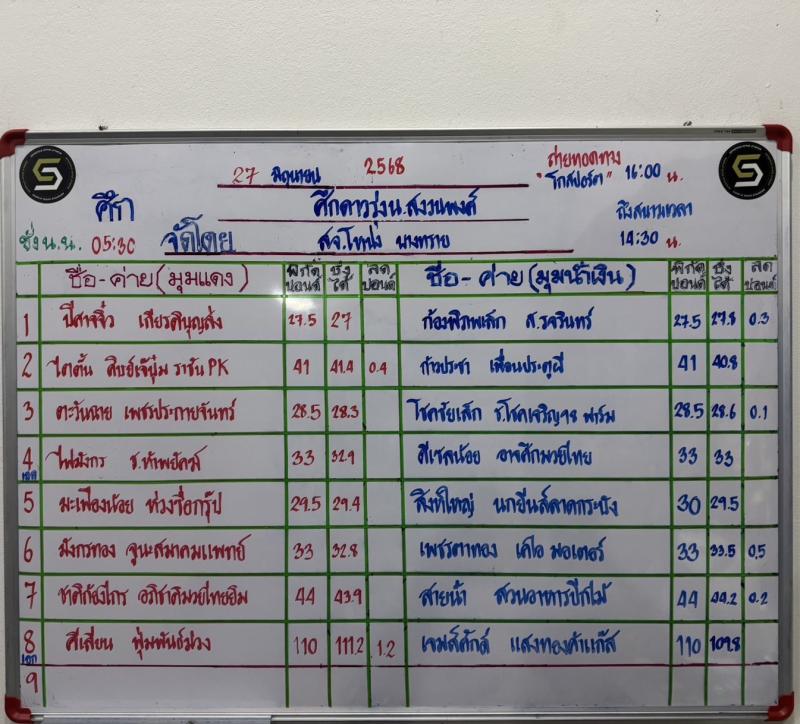 27 มิถุนายน 2568
ถ่ายทอดทาง "โกสปอร์ต" 16:00 น.
ศึก ศึกดาวรุ่งน.สงวนพงศ์
ถึงสนามเวลา 14:30 น.
ชั่งน.น. 05:30 จัดโดย สจ.โหน่ง บางทราย
ชื่อ-ค่าย(มุมแดง) พิกัดปอนด์ ชั่งได้ ลดปอนด์ ชื่อ-ค่าย(มุมน้ำเงิน) พิกัดปอนด์ ชั่งได้ ลดปอนด์
1 ปีศาจจิ๋ว เกียรติบุญส่ง 27.5 27 ก้องพิภพเล็ก ส.รจรินทร์ 27.5 27.8 0.3
2 ไตตั้น ศิษย์เจ๊ปุ๋ม ราชัน PK 41 41.4 0.4 ก้าวประชา เพื่อนประตูผี 41 40.8
3 ตะวันฉาย เพชรประกายจันทร์ 28.5 28.3 โชคชัยเล็ก 28.5 28.6 0.1
4 เอก ไฟมังกร ช.ห้าพยัคฆ์ 33 32.9 สีเชลน้อย อาจศึกมวยไทย 33 33
5 มะเฟืองน้อย ห่วงรื่อกรุ๊ป 29.5 29.4 สิงห์ใหญ่ นกยีนส์ลาดกระบัง 30 29.5
6 มังกรทอง จูนะสมาคมแพทย์ 33 32.8 เพชรตาทอง เคโอ มอเตอร์ 33 33.5 0.5
7 ชาติก้องไกร อภิชาติมวยไทยยิม 44 43.9 สายน้ำ สวนอาหารปีกไม้ 44 44.2 0.2
8 เอก คีเลียน พุ่มพันธ์ม่วง 110 111.2 1.2 เจมส์ศักดิ์ แสงทองค้าแก๊ส 110 109.8
9